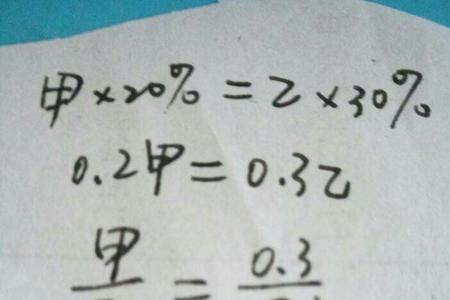 甲×20%=乙×30%
0.2甲=0.3乙
甲 = 0.3